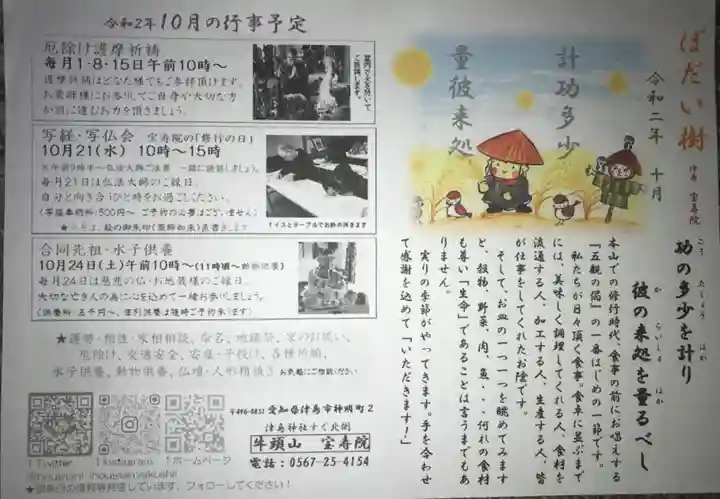 ぼだい樹
令和二年 十月
津島 宝寿院
計功多少
量彼来処
功の多少を計り
彼の来処を量るべし
本山での修行時代、食事の前にお唱えする
『五観の偈』の一番はじめの一節です。
私たちが日々頂く食事。食卓に並ぶまで
には、美味しく調理してくれる人、食材を
流通する人、加工する人、生産する人、皆
が仕事をしてくれたお陰です。
そして、お皿の一つ一つを眺めてみます
と、穀物、野菜、肉、魚・・・何れの食材
も尊い「生命」であることは言うまでもあ
りません。
実りの季節がやってきます。手を合わせ
て感謝を込めて「いただきます!」
令和2年10月の行事予定
厄除け護摩祈祷
毎月1・8・15日午前10時〜
護摩祈祷はどなた様でもご参拝頂けます。
お薬師様にお参りしてご自身や大切な方
が前に進むお力を頂きましょう。
堂内で火を焚いて
ご祈祷します。
写経・写仏会 宝寿院の「修行の日」
10月21日(水) 10時〜15時
毎月21日は弘法大師のご縁日。
自分と向き合うひと時をお過ごしください。
↑イスとテーブルでお静かに書きます
合同先祖・水子供養
10月24日(土)午前10時〜(11時頃〜
毎月24日は慈悲の仏・お地蔵様のご縁日。
大切な亡き人の為に心を込めて一緒お参りしましょう。
(供養料 五千円〜、個別供養は随時ご予約承ます)
★運勢・相性・家相相談、命名、地鎮祭、星のお祓い、
厄除け、交通安全、安産・子授け、各種祈願、
水子供養、動物供養、仏壇・人形精抜き お気軽にご相談ください
↑Twitter
↑Instagram
↑ホームページ
〒496-0851 愛知県津島市神明町2
津島神社すぐ北側
牛頭山 宝寿院
電話:0567-25-4154
しています、フォローしてください!